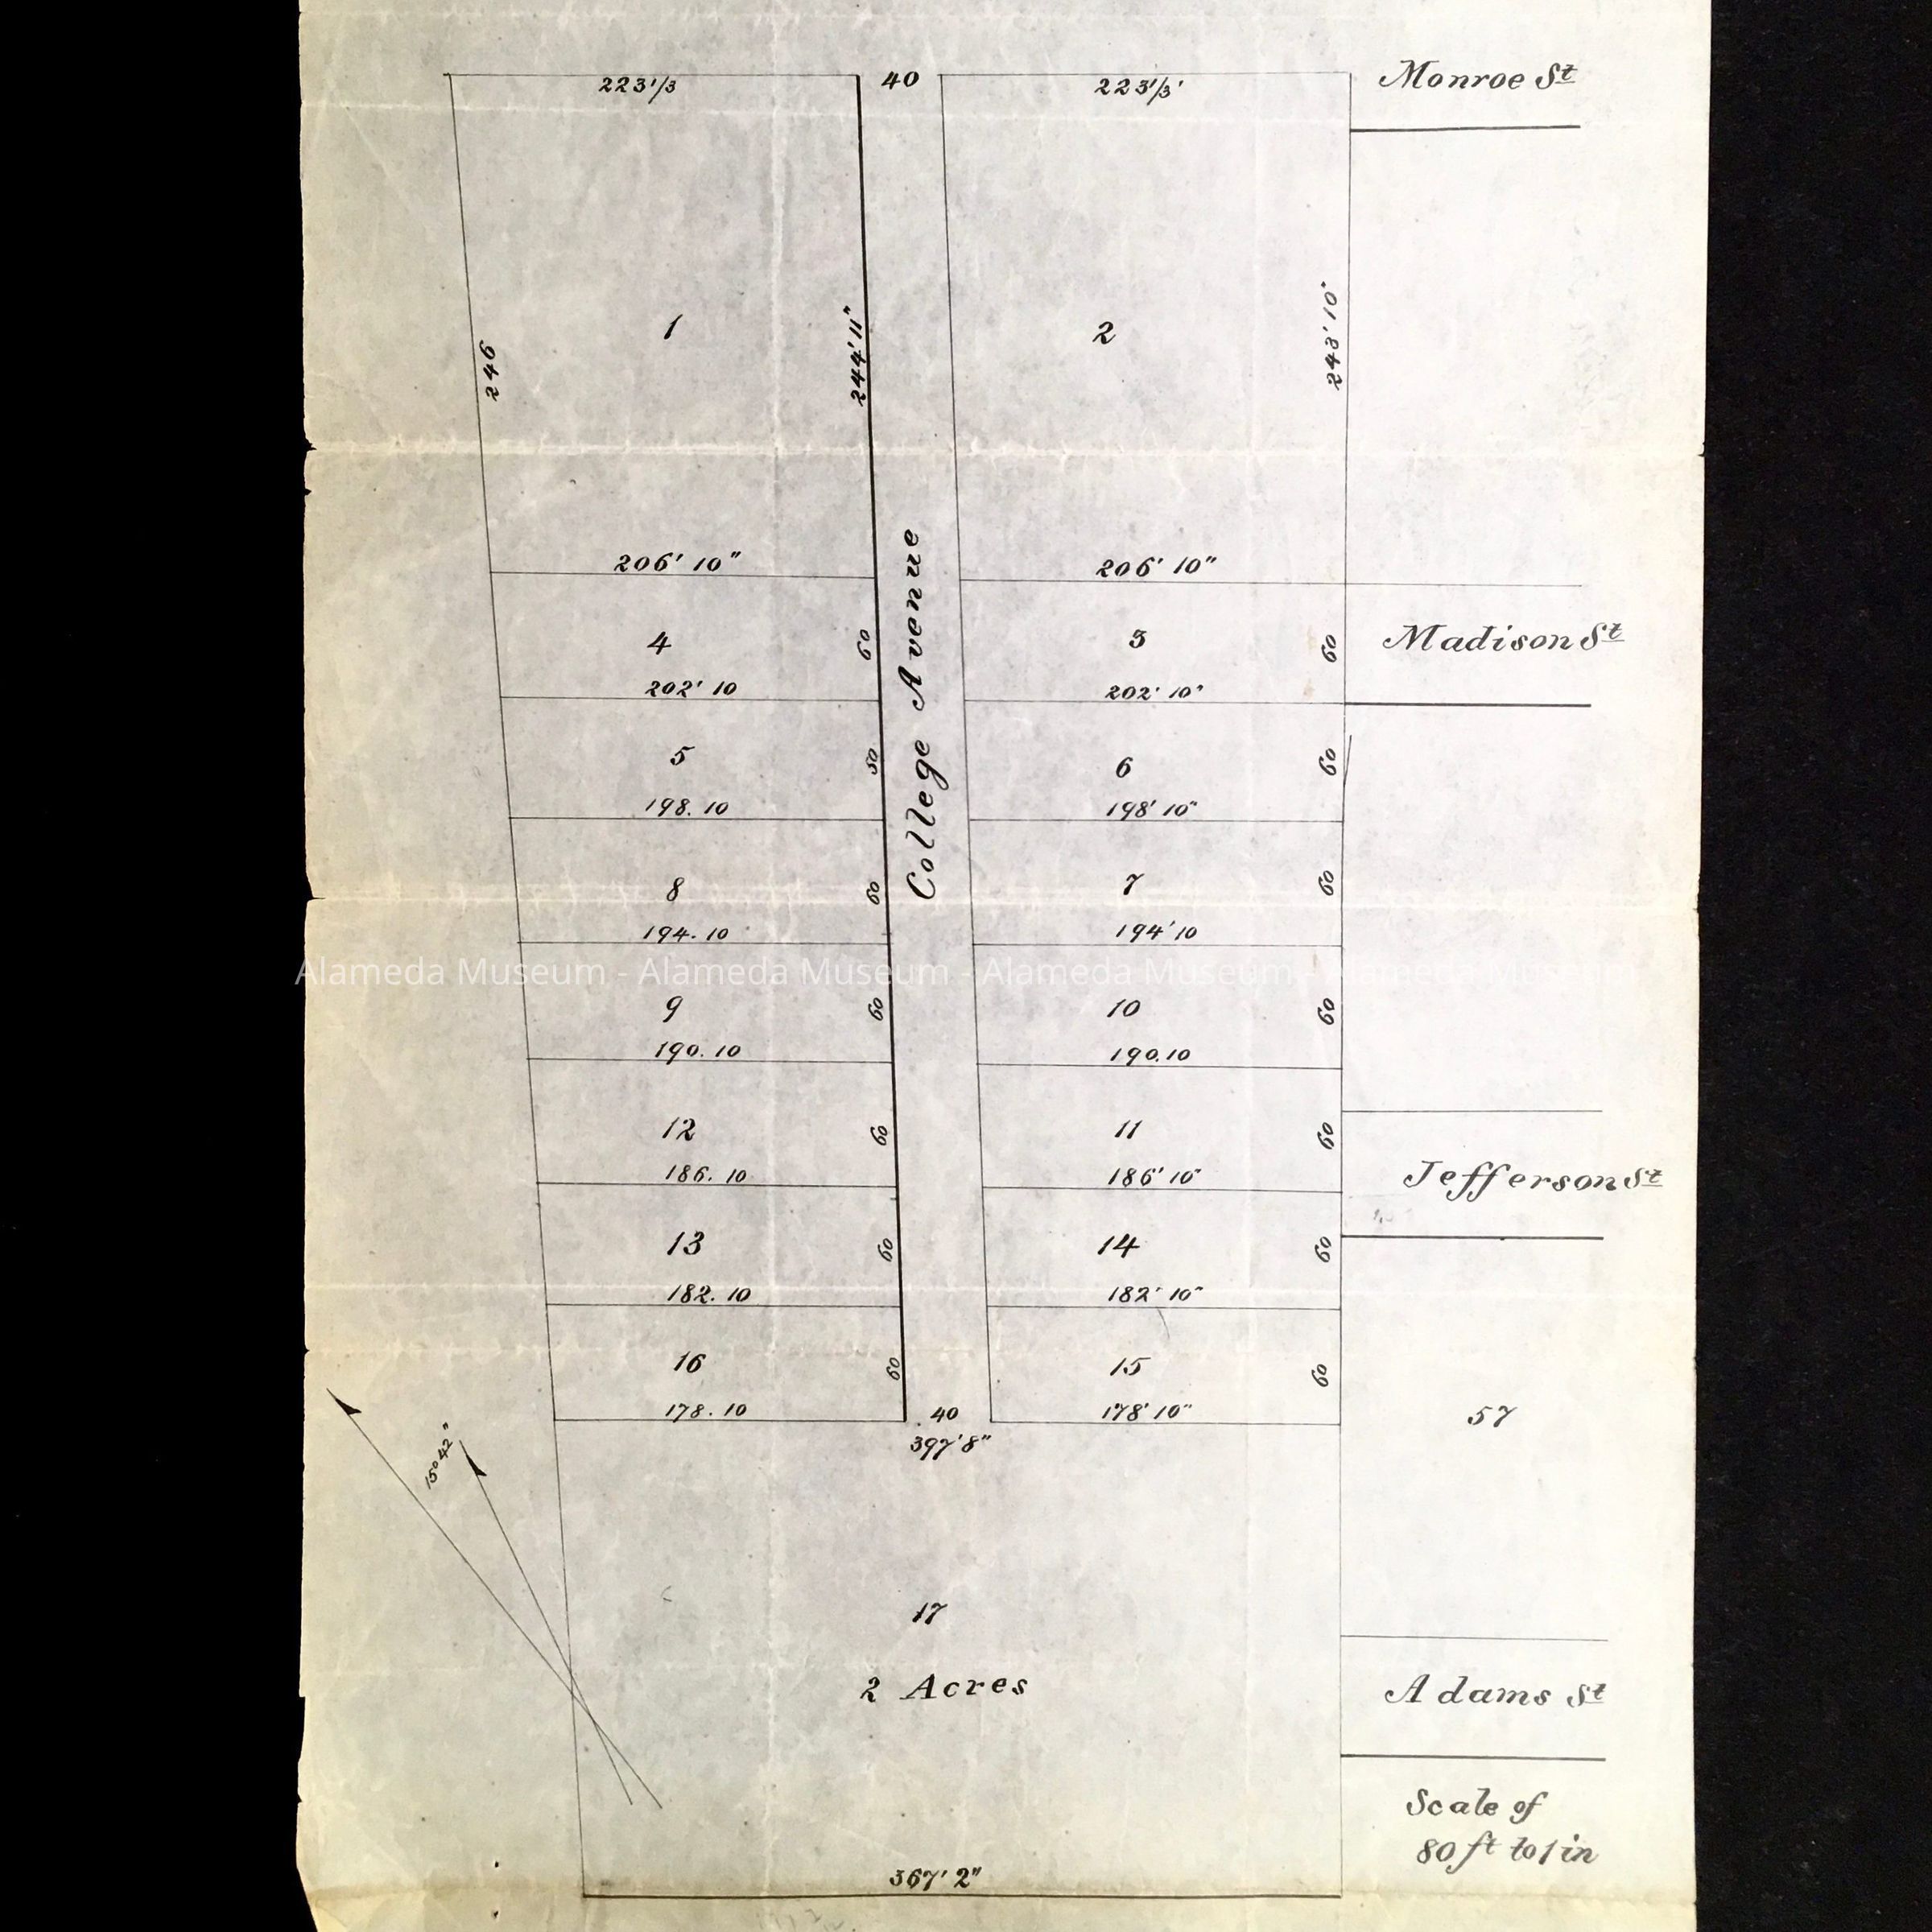 223 1/3 40 223 1/3' Monroe St
1 2
246 244' 11" 243' 10"
206' 10" 206' 10"
College Avenue
4 60 3 60 Madison St
202' 10 202' 10"
5 50 6 60
198. 10 198' 10"
8 60 7 60
194. 10 194' 10
Alameda Museum - Alameda Museum - Alameda Museum - Alameda Museum
9 60 10 60
190. 10 190. 10
12 60 11 60
186. 10 186' 10" Jefferson St
13 60 14 60
182. 10 182' 10"
16 60 15 60
178. 10 40 178' 10" 57
397' 8"
15° 42"
17
2 Acres Adams St
Scale of
80 ft to 1 in
367' 2"